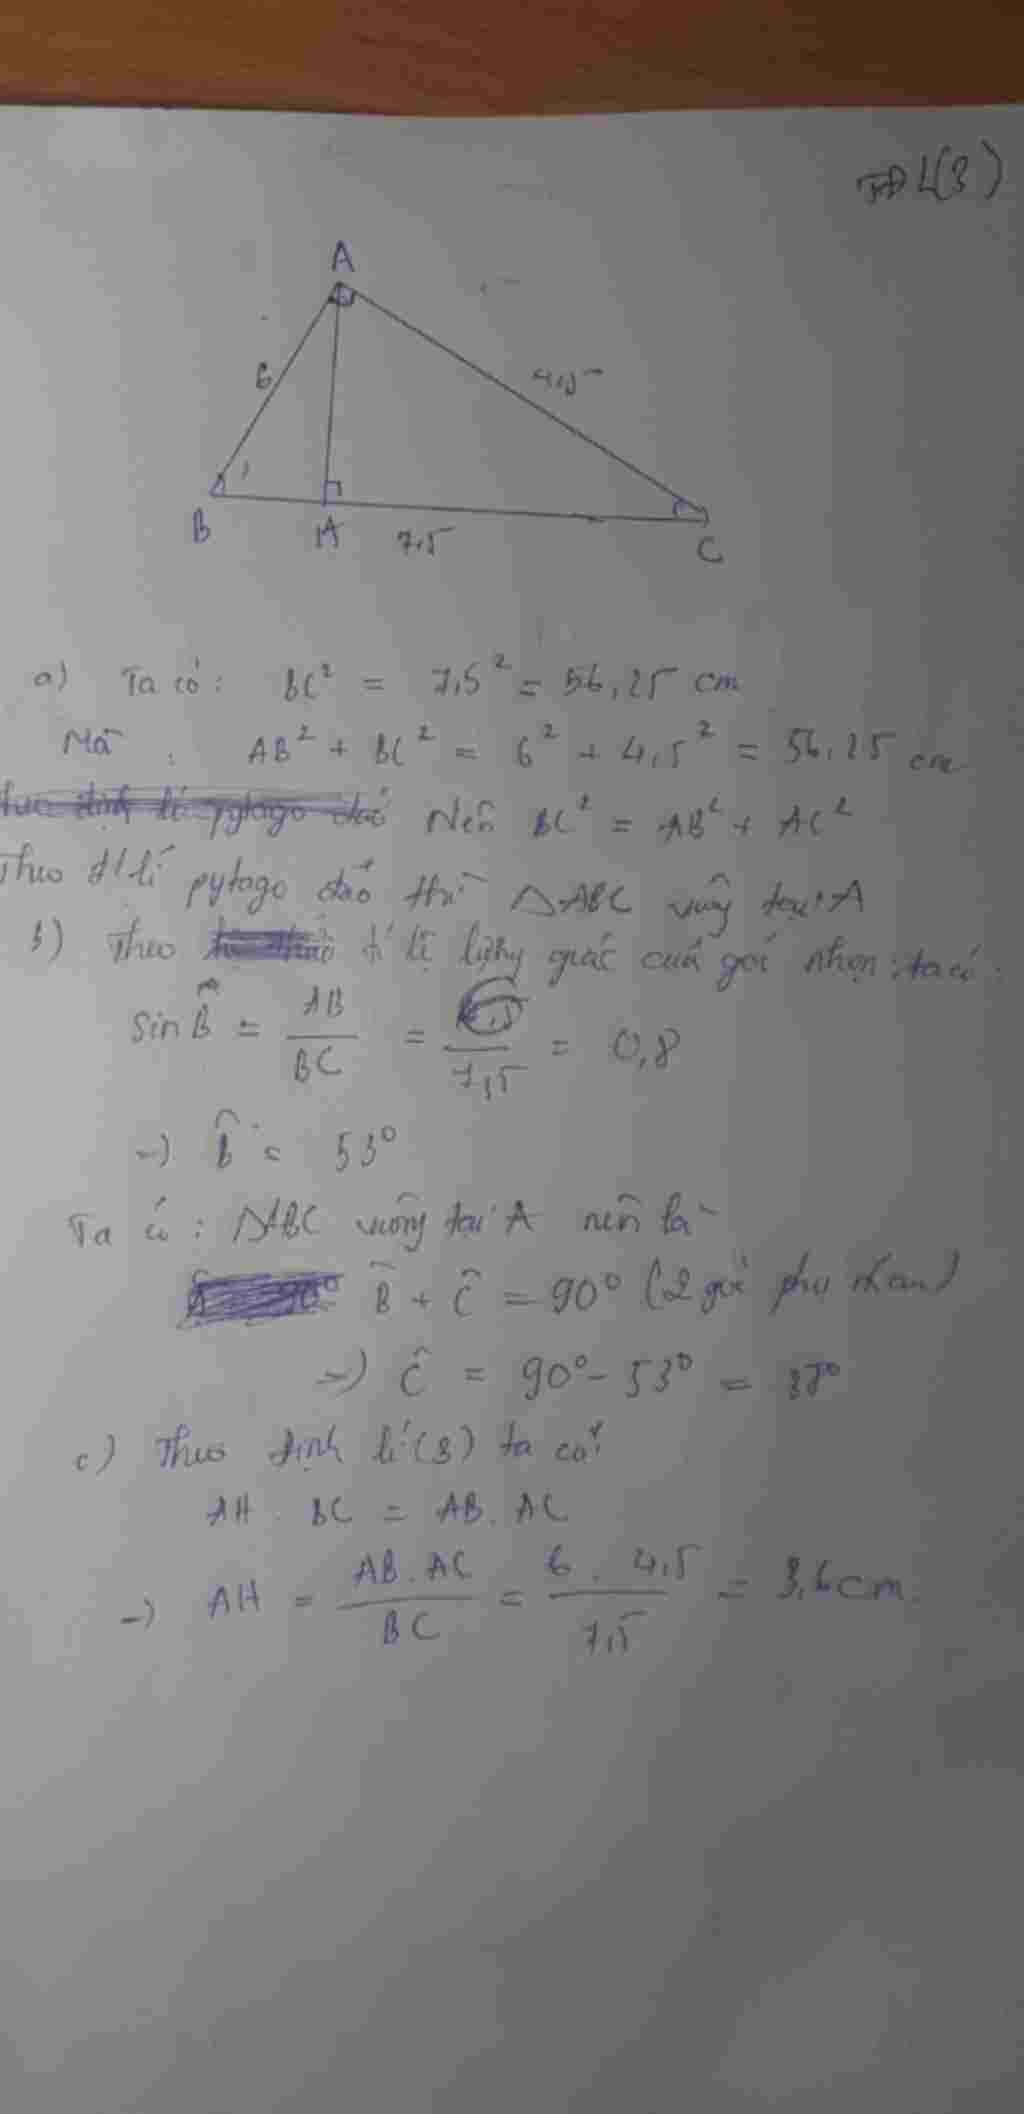 L(3)
A
6
4,5
B
H
7,5
C
a) Ta có: BC² = 7,5² = 56,25 cm
Mà : AB² + BC² = 6² + 4,5² = 56,25 cm
Nên BC² = AB² + AC²
Theo đ/lí pytago đảo thì △ABC vuông tại A
b) Theo tỉ lệ lượng giác của góc nhọn: ta có:
Sin B̂ = AB/BC = /7,5 = 0,8
→) B̂ = 53°
Ta có: △ABC vuông tại A nên ta
B̂ + Ĉ = 90° (2 góc phụ nhau)
→) Ĉ = 90° - 53° = 37°
c) Theo định lí (3) ta có
AH . BC = AB . AC
→) AH = AB . AC/BC = 6 . 4,5/7,5 = 3,6 cm.